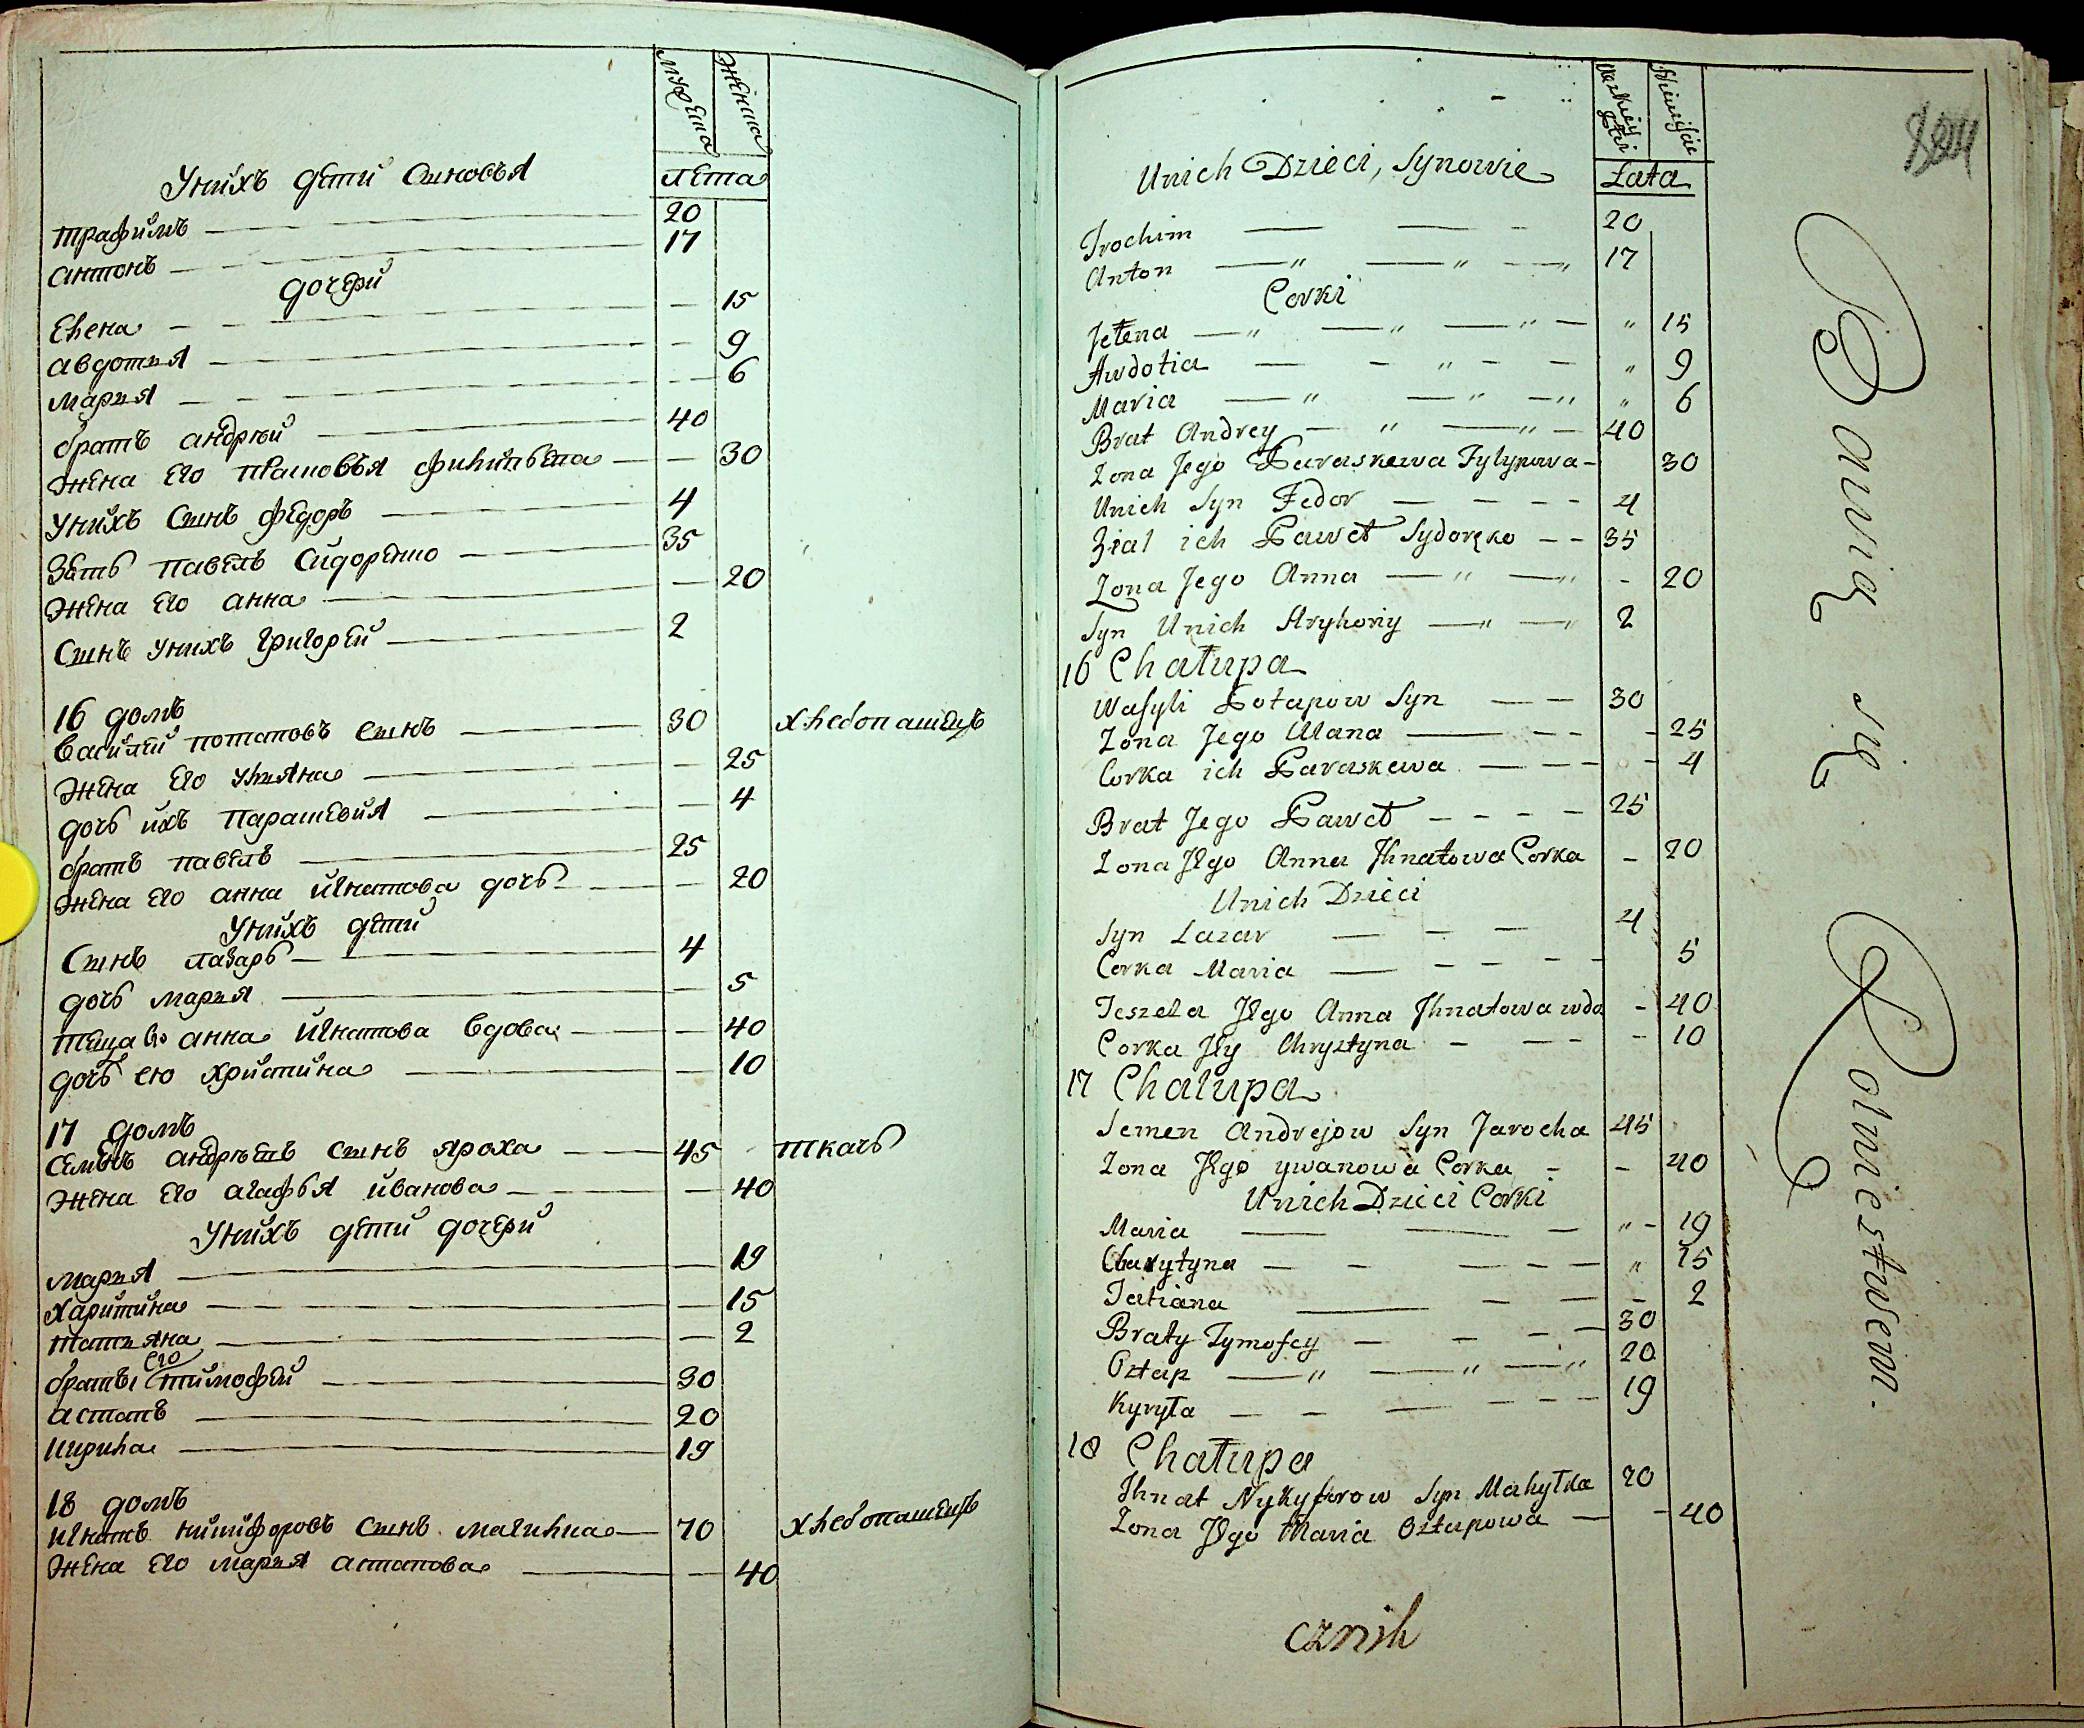 Мужеска
Женска
Лета
Унихъ дети синовья
трафимъ 20
антонъ 17
дочери
Елена 15
авдотья 9
марья 6
братъ андрей 40
жена его прасковья филипьева 30
Унихъ синъ федоръ 4
Зять павелъ Сидоренко 35
жена его анна 20
Синъ унихъ григорей 2
16 домъ
Василей потаповъ синъ 30 хлебопашецъ
жена его ульяна 25
дочь ихъ Парашевия 4
братъ павелъ 25
жена его анна игнатова дочь 20
Унихъ дети
Синъ лазарь 4
дочь марья 5
теща его анна игнатова вдова 40
дочь ею христина 10
17 домъ
Семенъ андреевъ синъ яроха 45 ткачь
жена его агафья иванова 40
Унихъ дети дочери
марья 19
харитина 15
татьяна 2
братьи его тимофей 30
астапъ 20
кирила 19
18 домъ
игнатъ никифоровъ синъ магилка 70 хлебопашецъ
жена его марья астапова 40
Męzkiey
Płci
Żeńskie
Lata
Unich Dzieci, Synowie
Trochim 20
Anton " " " 17
Corki
Jełena " " " " 15
Awdotia " " 9
Maria " " " " 6
Brat Andrey " " 40
Zona Jego Paraskewa Fylypowa 30
Unich Syn Fedor 4
Ziat ich Paweł Sydoręko 35
Zona Jego Anna " " 20
Syn Unich Hryhoriy " " 2
16 Chałupa
Wasyli Potapow Syn 30
Zona Jego Ulana 25
Corka ich Paraskewa 4
Brat Jego Paweł 25
Zona Jego Anna Jhnatowa Corka 20
Unich Dzieci
Syn Lazar 4
Corka Maria 5
Teszcza Jego Anna Jhnatowa wda 40
Corka Jey Chrystyna 10
17 Chalupa
Semen Andrejow Syn Jarocha 45
Zona Jego ywanowa Corka 40
Unich Dzieci Corki
Maria " 19
Charytyna " 15
Tatiana 2
Braty Tymofey 30
Ostap " " " 20
Kyryła 19
18 Chałupa
Jhnat Nykyforow Syn Mahyłka 70
Zona Jego Maria Ostapowa 40
Pawią się Rolnictwem.